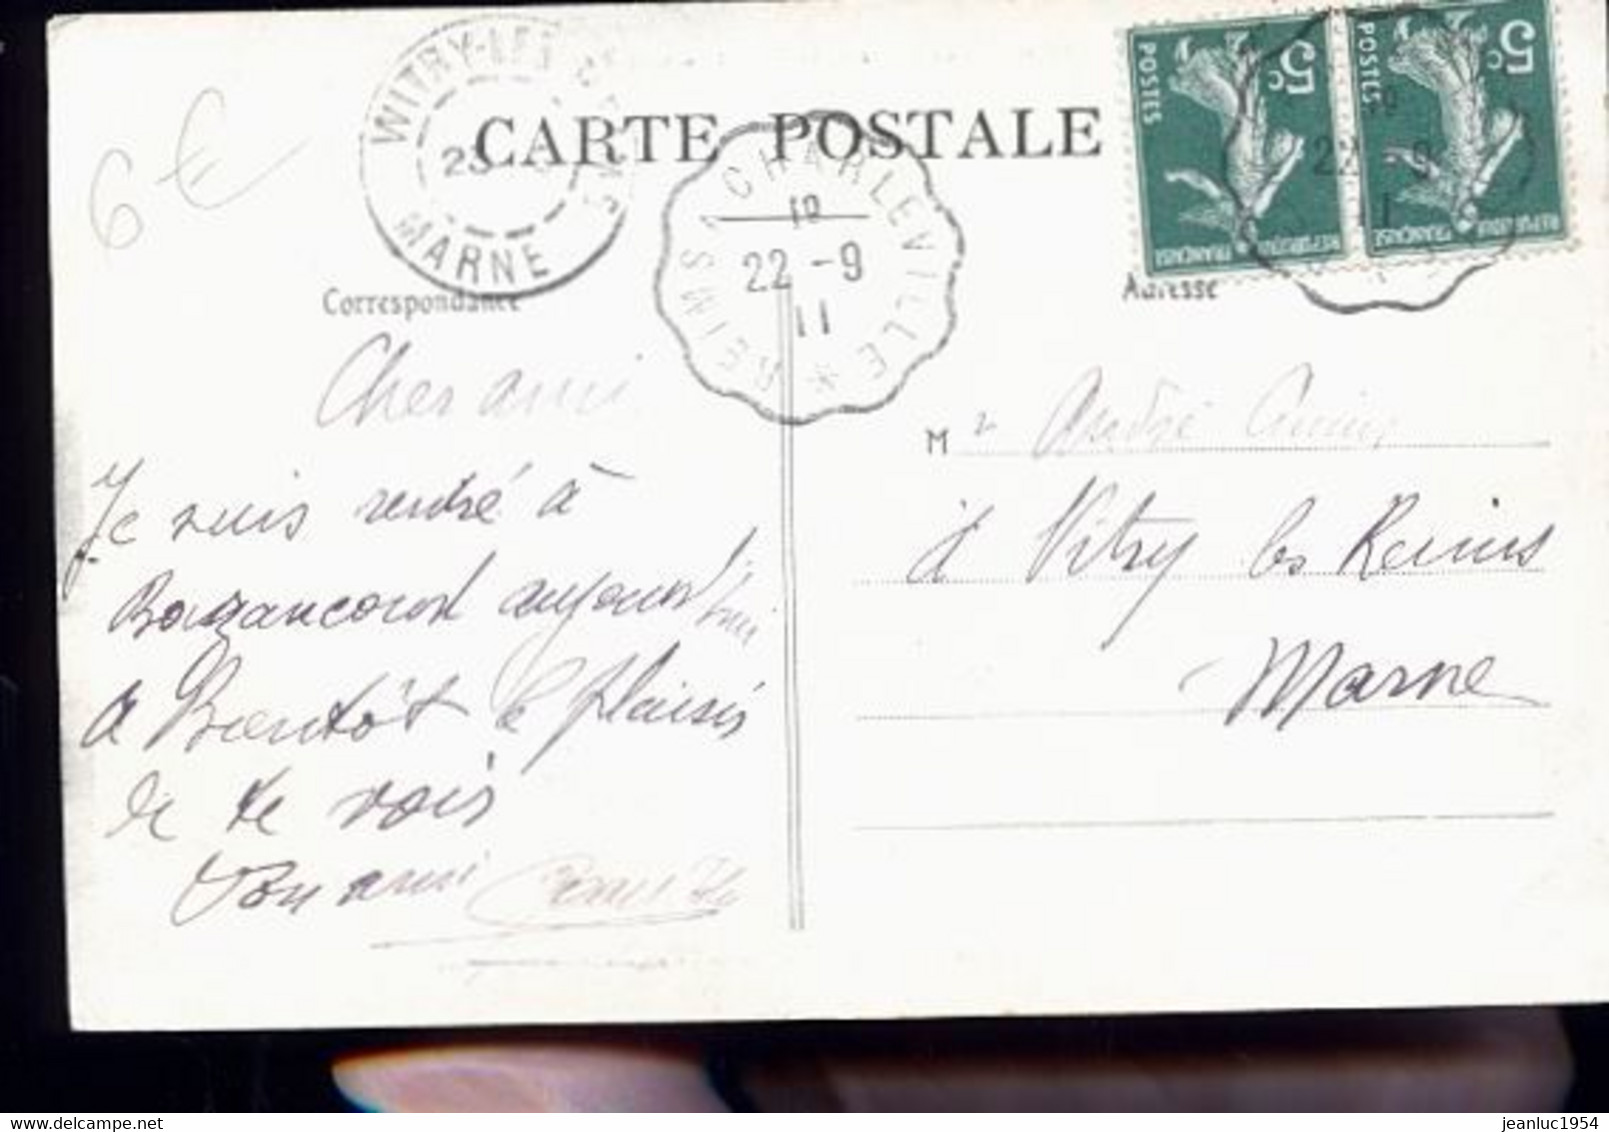 6€
WITRY-LES-REIMS
23
MARNE
CARTE POSTALE
REIMS À CHARLEVILLE *
22 - 9
11
5c
POSTES
REPUBLIQUE FRANÇAISE
5c
POSTES
REPUBLIQUE FRANÇAISE
Correspondance
Adresse
Cher ami
Je suis rentré à
Bazancourt aujourd'hui
a Bientôt le plaisir
de te voir
ton ami
M r André
à Vitry les Reims
Marne
delcampe.net
jeanluc1954